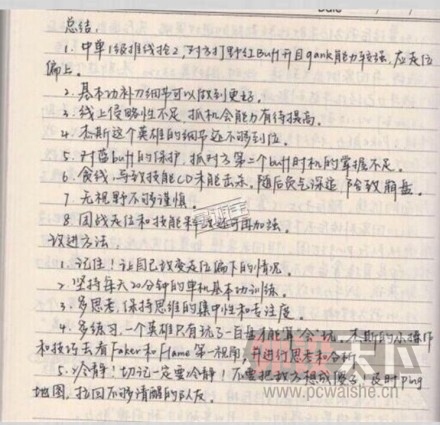 总结.
1. 中单1级推线抢2,对方打野红buff开且gank能力较强,应走位
偏上。
2. 基本功补刀细节可以做到更好。
3. 线上侵略性不足,抓机会能力有待提高。
4. 杰斯这个英雄的细节还不够到位。
5. 对蓝buff的保护,抓对方第二个buff时机的掌握不足。
6. 贪线,导致技能CD未能击杀,随后负气深追,导致崩盘。
7. 无视野不够谨慎。
8. 团战走位和技能释放还可再加强。
改进方法
1. 记住!让自己改变走位偏下的情况。
2. 坚持每天20分钟的单机基本功训练。
3. 多思考,保持思维的集中性和专注度
4. 多练习,一个英雄只有玩了一百盘才能算"会"玩,杰斯的小操作
和技巧去看Faker和Flame第一视角,并进行思考和分析
5. 冷静!切记一定要冷静!不要把敌方想成傻子,及时Ping
地图,拉回不够清醒的队友。
www.pcwaishe.cn